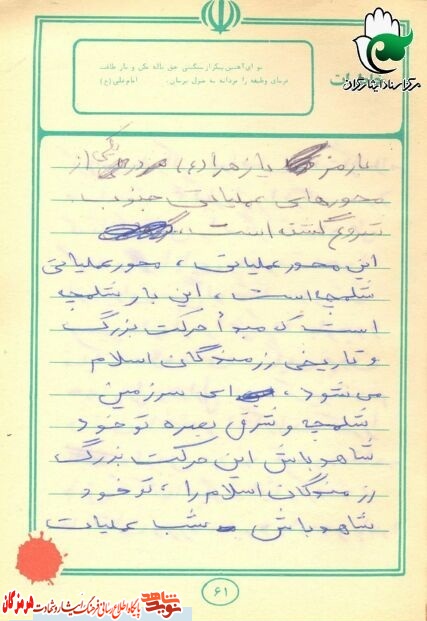 مرکز اسناد ایثارگران
خاطرات
تو ای آهنین پیکر از سنگینی حق ناله مکن و بار طاقت
فرسای وظیفه را مردانه به منزل برسان. امام علی (ع)
با رمز یا زهرا (س) در یکی از
محورهای عملیاتی جنوب
شروع گشته است،
این محور عملیاتی، محور عملیاتی
شلمچه است، این بار شلمچه
است که مبدأ حرکت بزرگ
و تاریخی رزمندگان اسلام
می شود، ای سرزمین
شلمچه و شرق بصره تو خود
شاهد باش این حرکت بزرگ
رزمندگان اسلام را، تو خود
شاهد باش شب عملیات
۶۱
نوید شاهد
پایگاه اطلاع رسانی فرهنگ ایثار و شهادت هرمزگان